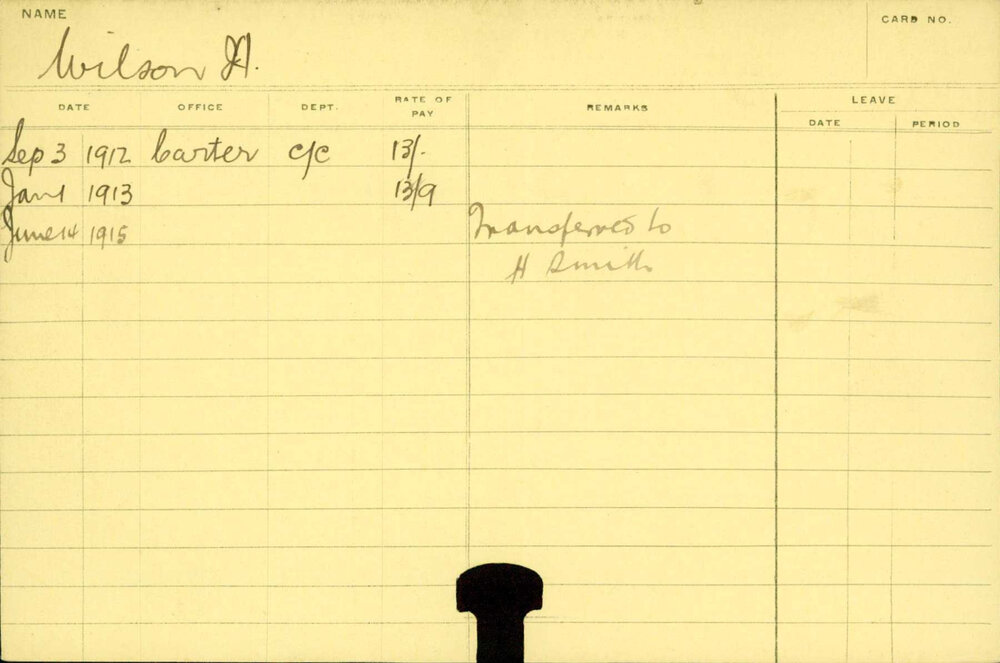 NAME
CARD NO.
Wilson H.
DATE OFFICE DEPT. RATE OF PAY REMARKS LEAVE
DATE PERIOD
Sep 3 1912 Carter c/c 13/-
Jan 1 1913 13/9
June 14 1915 Transferred to
H Smith